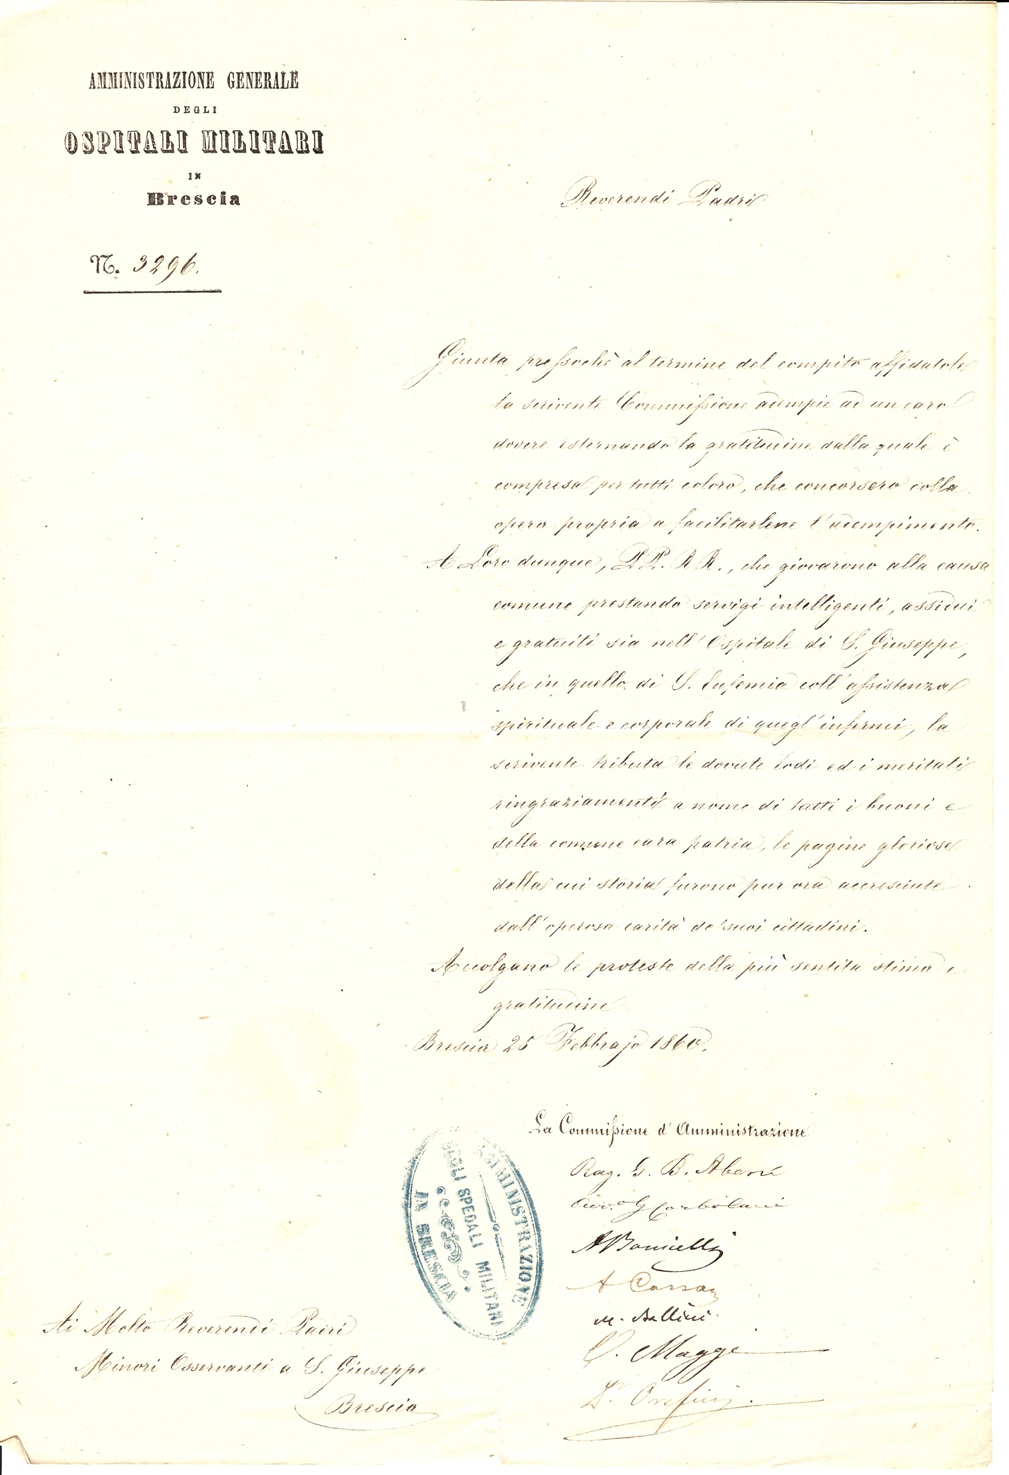 AMMINISTRAZIONE GENERALE
DEGLI
OSPITALI MILITARI
IN
Brescia
N. 3296.
Reverendi Padri
Giunta pressochè al termine del compito affidatole
la scrivente Commissione adempie ad un caro
dovere esternando la gratitudine dalla quale è
compresa per tutti coloro, che concorsero colla
opera propria a facilitarlene l'adempimento.
A Loro dunque, PP. RR., che giovarono alla causa
comune prestando servigi intelligenti, assidui
e gratuiti sia nell'Ospitale di S. Giuseppe,
che in quello di S. Eufemia coll'assistenza
spirituale e corporale di quegl'infermi, la
scrivente tributa le dovute lodi ed i meritati
ringraziamenti a nome di tutti i buoni e
della comune cara patria, le pagine gloriose
della cui storia furono pur ora accresciute
dall'operosa carità de' suoi cittadini.
Accolgano le proteste della più sentita stima e
gratitudine
Brescia 25 Febbrajo 1860.
La Commissione d'Amministrazione
Rag. G. B.
A Bonicelli
M. Bellini
Maggi
Dr Orefici
AMMINISTRAZIONE
DEGLI SPEDALI MILITARI
IN BRESCIA
Ai Molto Reverendi Padri
Minori Osservanti a S. Giuseppe
Brescia